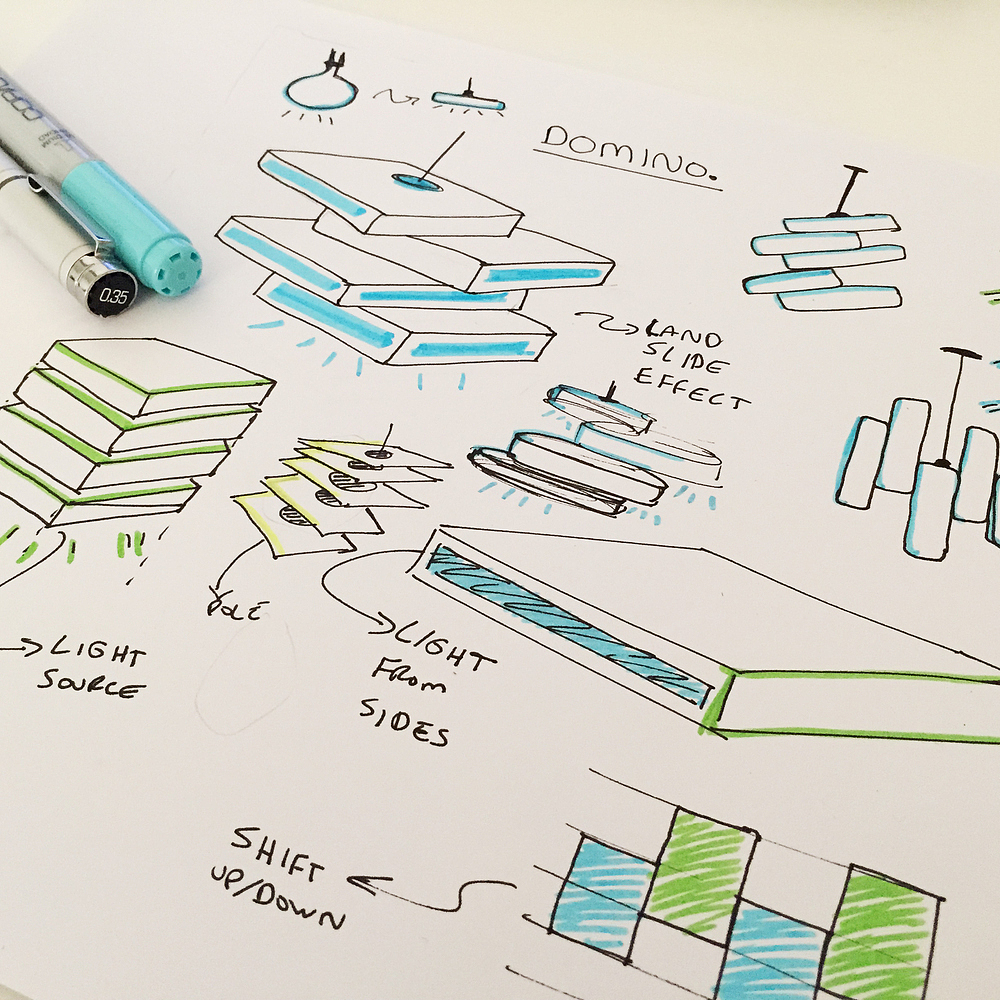 DOMINO.
COPIC
0.35
LAND
SLIDE
EFFECT
LIGHT
SOURCE
LIGHT
FROM
SIDES
SHIFT
UP/DOWN